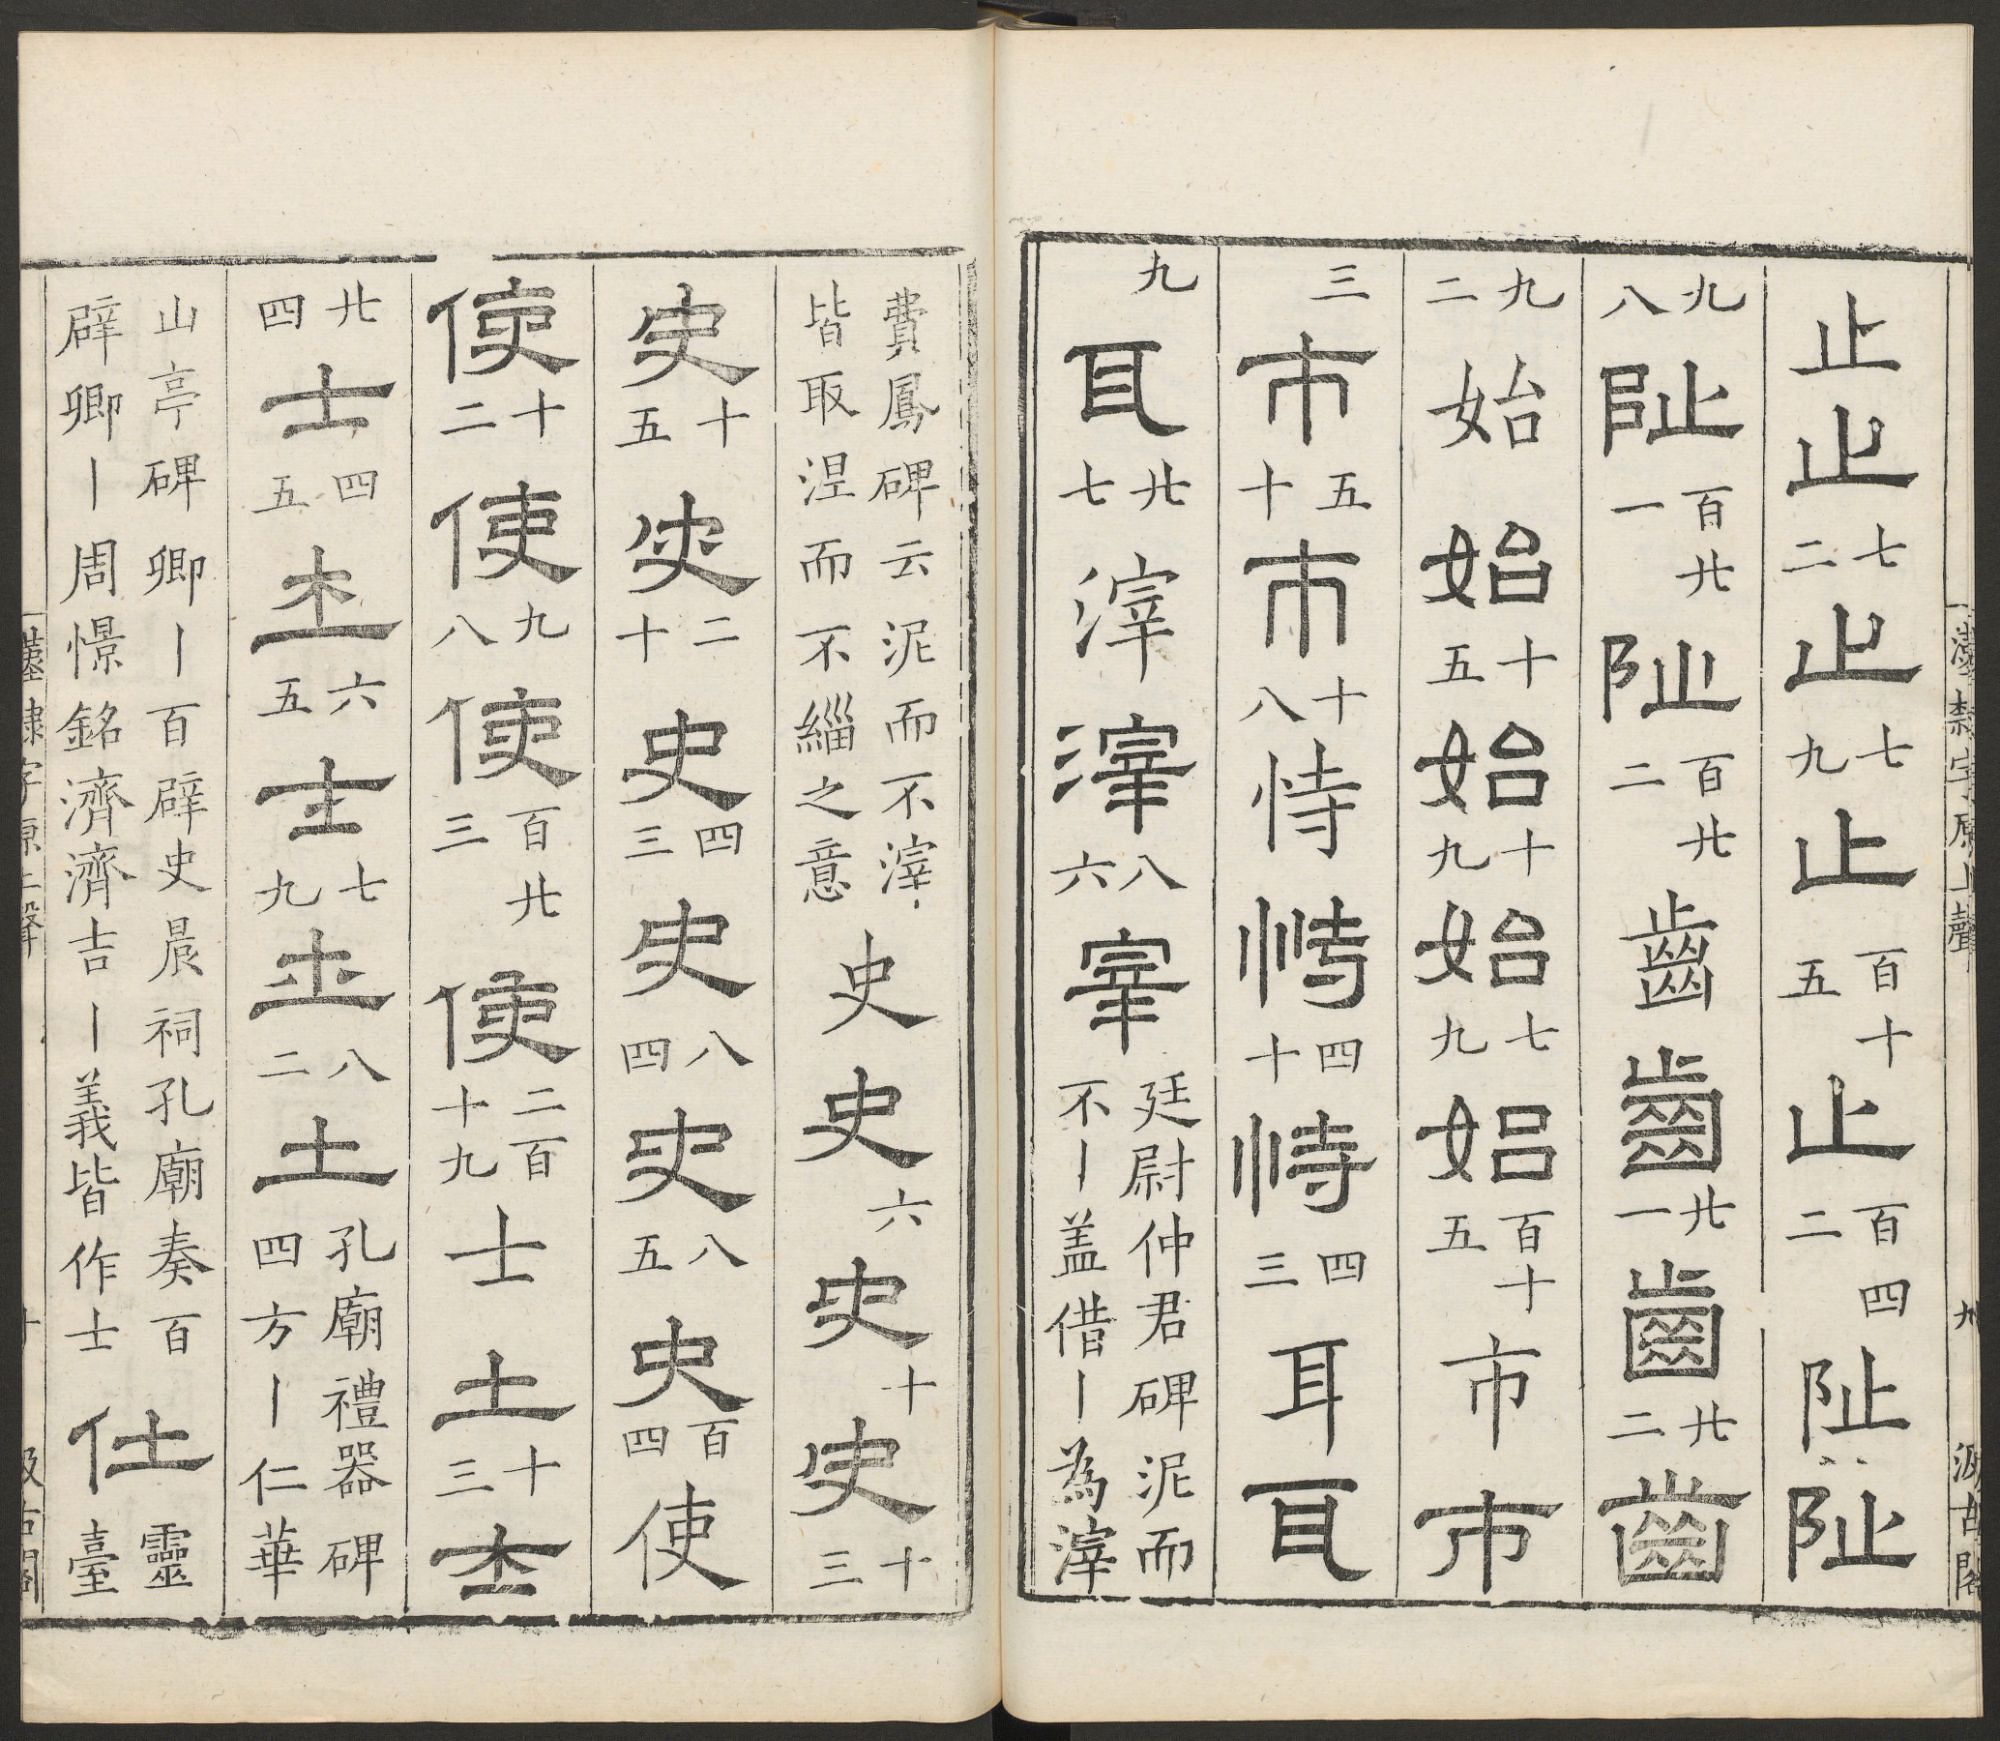 漢隸字原上聲 九 汲古閣
止止七二止七九止百十五止百四二阯阯
九八阯百廿一阯百廿二齒齒廿一齒廿二齒
九二始始十五始十九始七九始百十五市市
三市五十市十八恃恃四十恃四三耳耳
九耳廿七滓滓八六宰廷尉仲君碑泥而不丨盖借丨為滓
費鳳碑云泥而不滓皆取涅而不緇之意史史六史十史十三
史十五史二十史四三史八四史八五史百四使
使十二使九八使百廿三使二百十九士士十三士
廿四士四五士六五士七九士八二士孔廟禮器碑四方丨仁華
山亭碑卿丨百辟史晨祠孔廟奏百辟卿丨周憬銘濟濟吉丨義皆作士仕靈臺
漢隸字原上聲 十 汲古閣